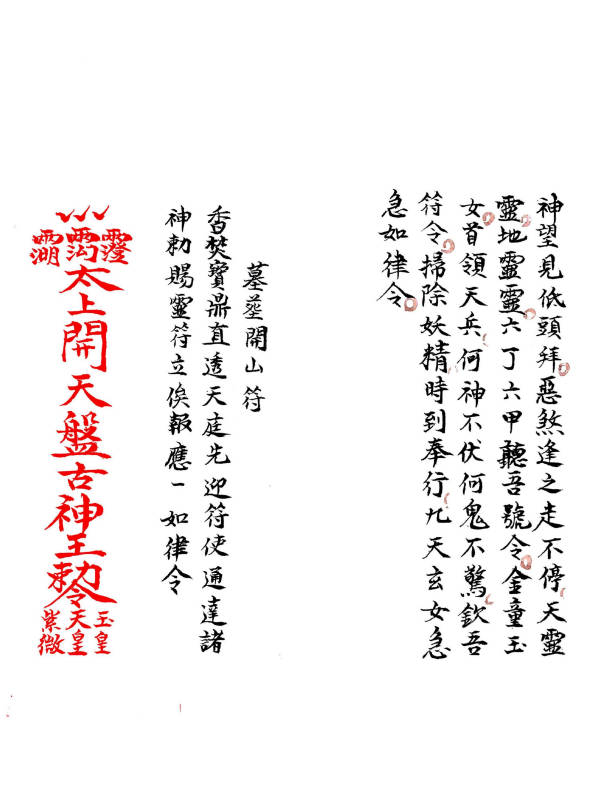 神望見低頭拜惡煞逢之走不停天靈
靈地靈靈六丁六甲聽吾號令金童玉
女首領天兵何神不伏何鬼不驚欽吾
符令掃除妖精時到奉行九天玄女急
急如律令
墓塋開山符
香焚寶鼎直透天庭先迎符使通達諸
神勅賜靈符立俟報應一如律令
太上開天盤古神王勅令
玉皇
天皇
紫微